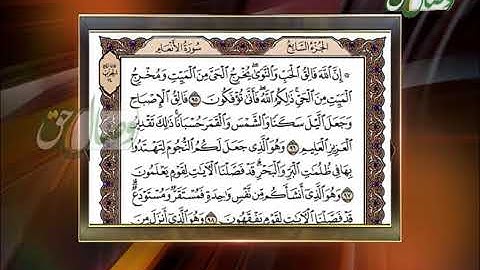 الجزء السابع
سورة الأنعام
۞ إن الله فالق الحب والنوى يخرج الحي من الميت ومخرج
الميت من الحي ذلكم الله فأنى تؤفكون ٩٥ فالق الإصباح
وجعل الليل سكنا والشمس والقمر حسبانا ذلك تقدير
العزيز العليم ٩٦ وهو الذي جعل لكم النجوم لتهتدوا
بها في ظلمات البر والبحر قد فصلنا الآيات لقوم يعلمون
٩٧ وهو الذي أنشأكم من نفس واحدة فمستقر ومستودع
قد فصلنا الآيات لقوم يفقهون ٩٨ وهو الذي أنزل من
وصال حق